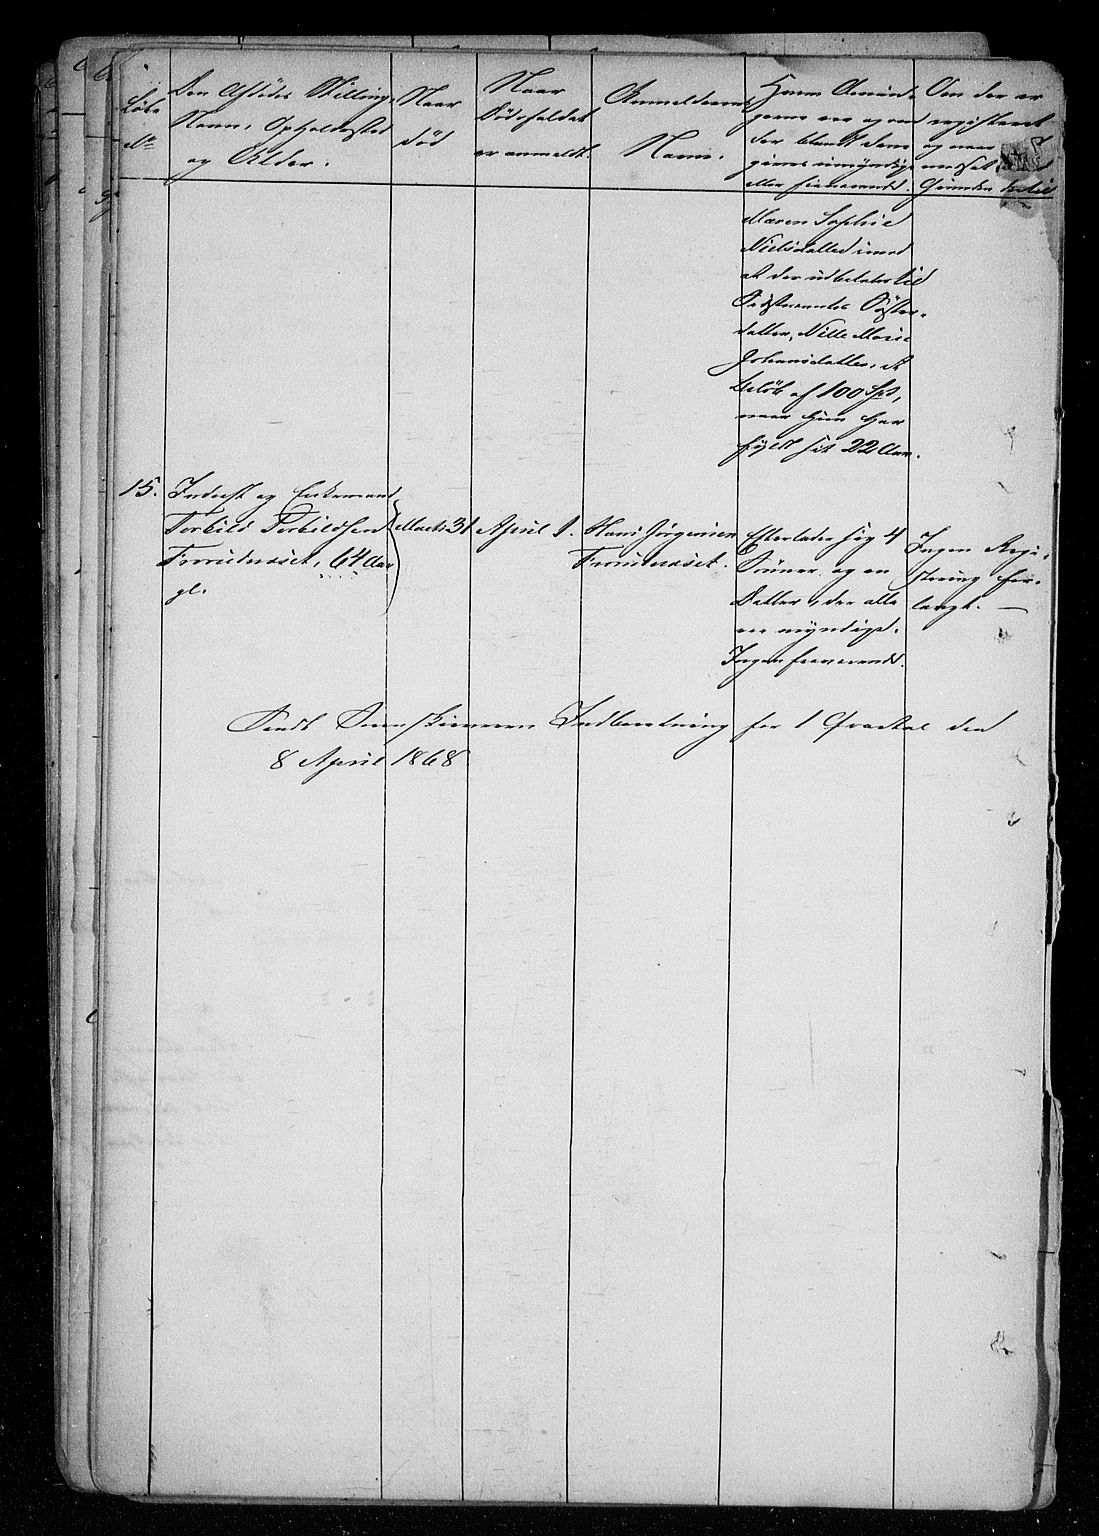 Løbe
No
Den Afdødes Stilling,
Navn, Opholdssted
og Alder.
Naar
død
Naar
Dødsfaldet
er anmeldt.
Anmelderens
Navn.
Hvem Arvin-
gerne ere og om
der blandt dem
gives umyndige
eller fraværende.
Om der er
registreret
og naar
Grunden dertil
Maren Sophie
Nielsdatter imod
at der udbetales til
Testamentes Søster-
datter, Nille Marie
Johansdatter, et
Beløb af 100 Spd,
naar hun har
fyldt sit 22 Aar.
15.
Inderst og Enkemand
Torkild Torkildsen
64 Aar
gl.
Marts 31
April 1.
Hans Jørgensen
Efterlader sig 4
Sønner og en
Datter, der alle
ere myndige.
Ingen fraværende.
Ingen Regi-
strering for-
langt. —
Sendt Sorenskriveren Indberetning for 1 Qvartal den
8 April 1868